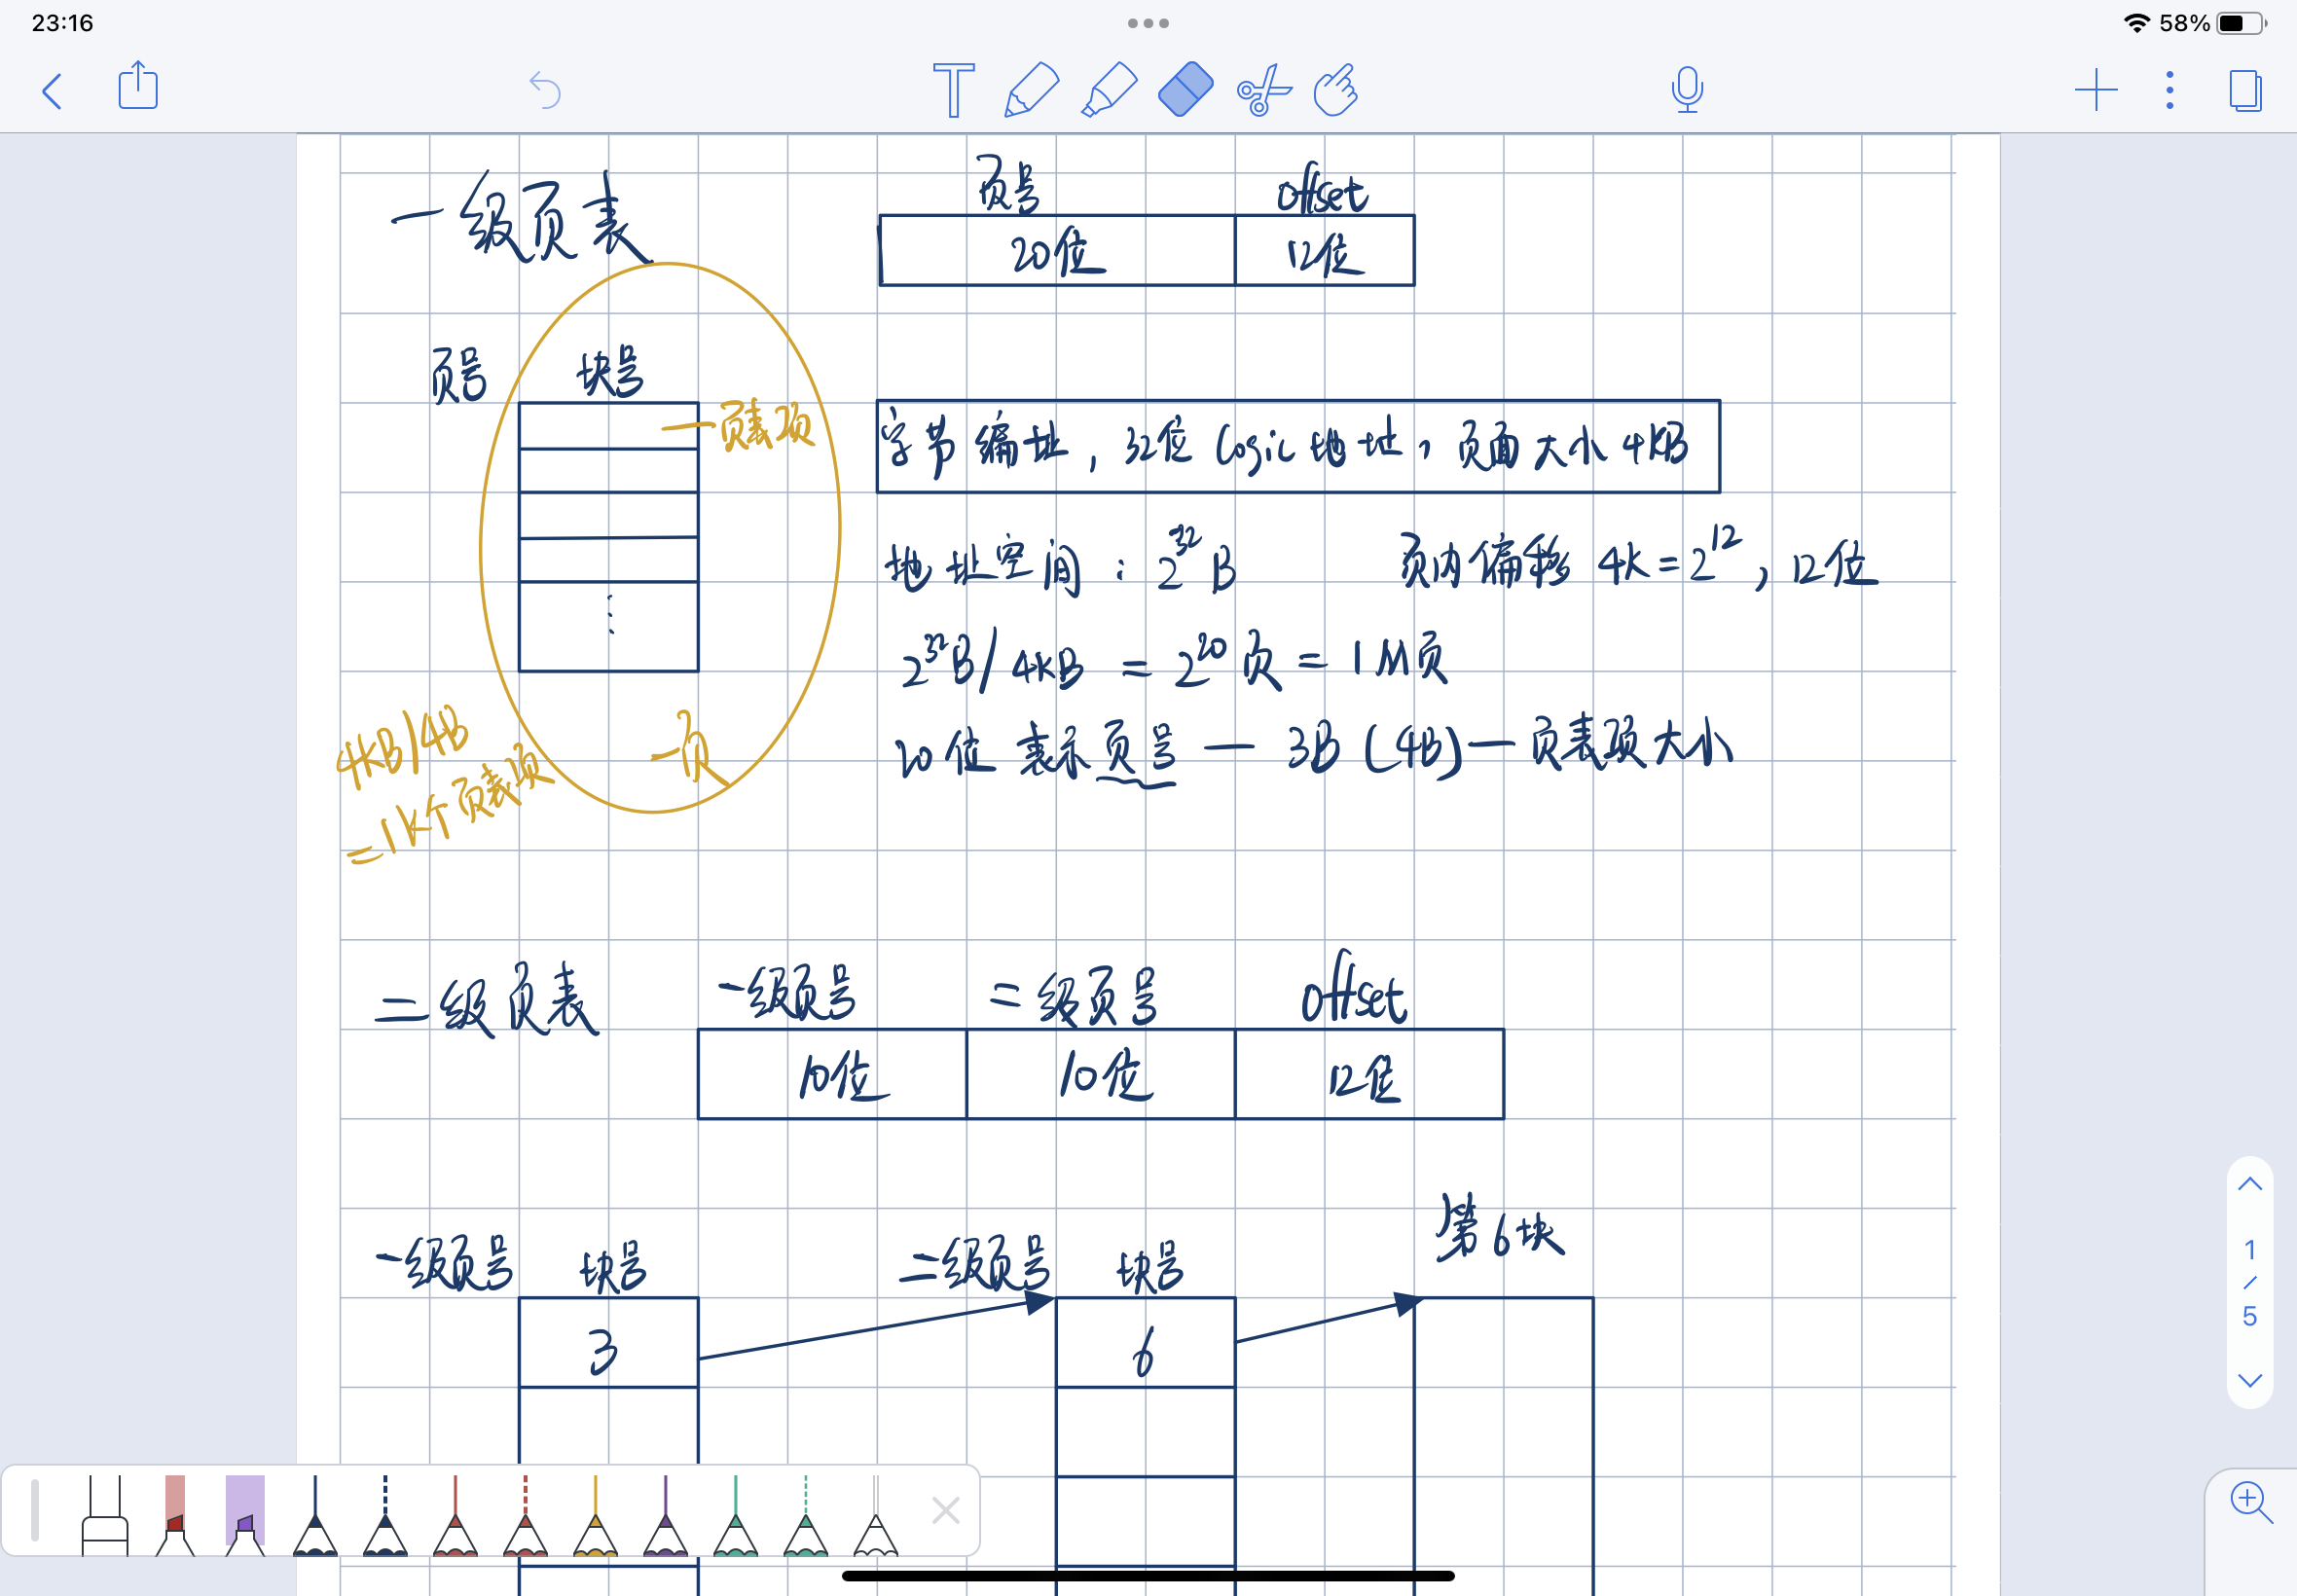 23:16
58%
T
一级页表
页号 offset
20位 12位
页号 块号
一页表项
字节编址，32位Logic地址，页面大小4KB
地址空间：2^32B 页内偏移 4K=2^12，12位
2^32B/4KB = 2^20页 = 1M页
20位表示页号 — 3B (4B) — 页表项大小
一页
4KB/4B
=1K个页表项
二级页表
一级页号 二级页号 offset
10位 10位 12位
一级页号 块号 二级页号 块号 第6块
3 6
1
/
5